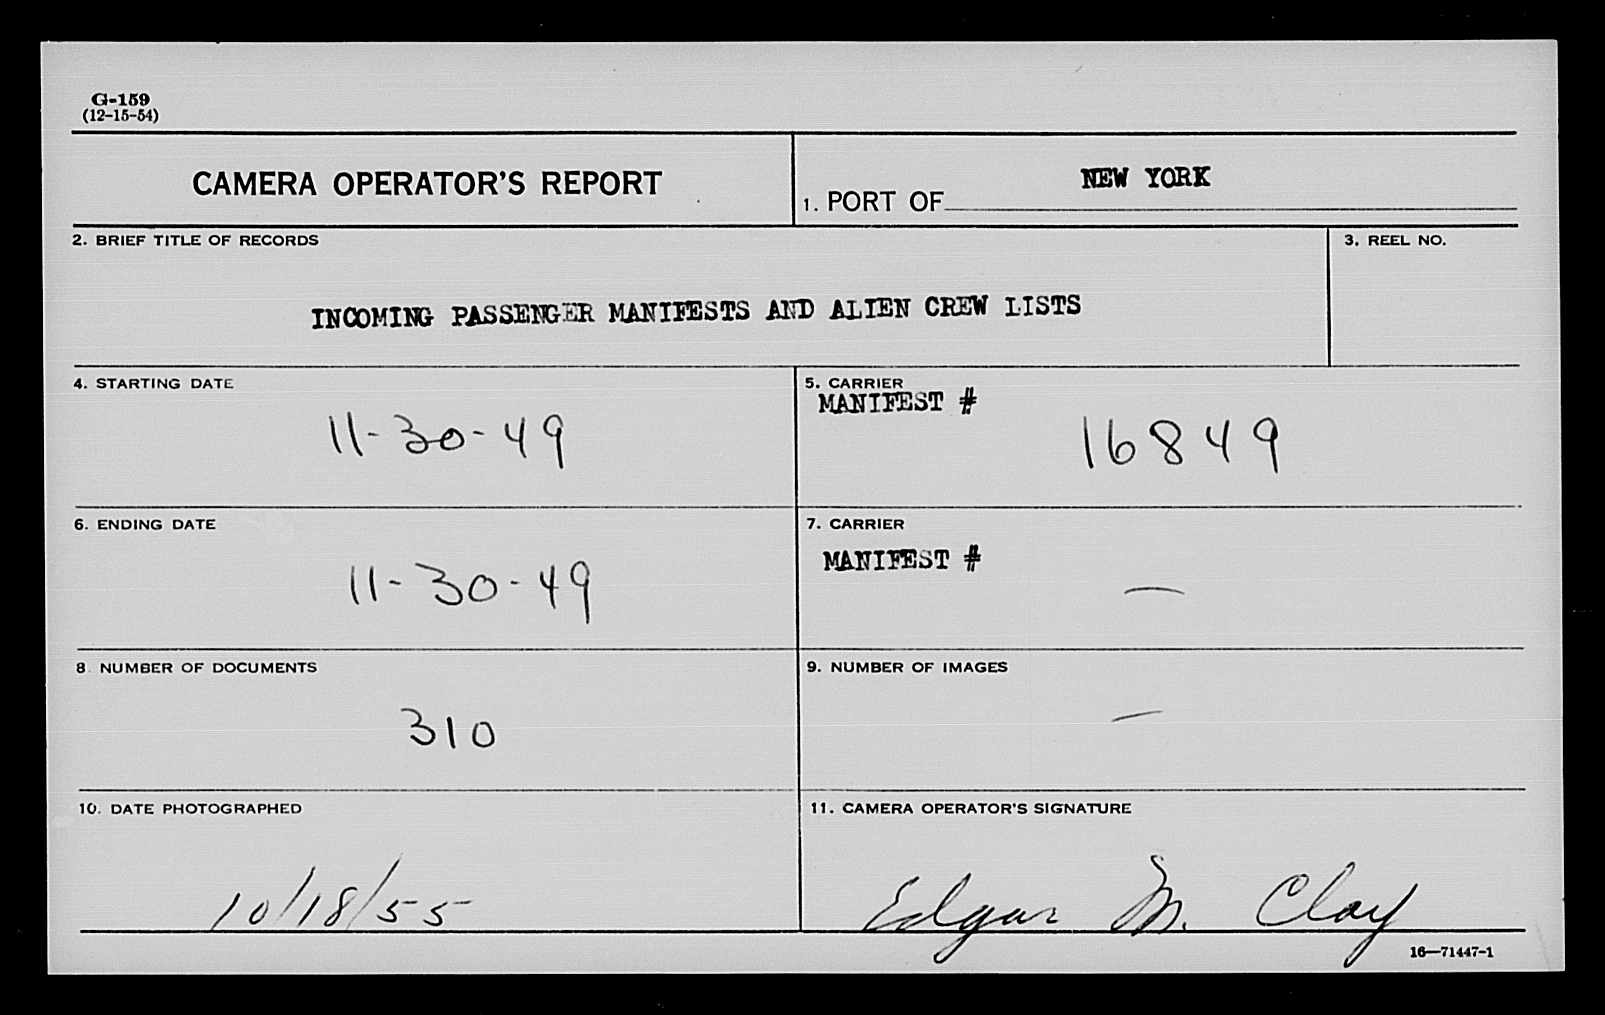 G-159
(12-15-54)
CAMERA OPERATOR'S REPORT
1. PORT OF NEW YORK
2. BRIEF TITLE OF RECORDS
3. REEL NO.
INCOMING PASSENGER MANIFESTS AND ALIEN CREW LISTS
4. STARTING DATE
11-30-49
5. CARRIER
MANIFEST #
16849
6. ENDING DATE
11-30-49
7. CARRIER
MANIFEST #
—
8. NUMBER OF DOCUMENTS
310
9. NUMBER OF IMAGES
—
10. DATE PHOTOGRAPHED
10/18/55
11. CAMERA OPERATOR'S SIGNATURE
Edgar M. Clay
16—71447-1